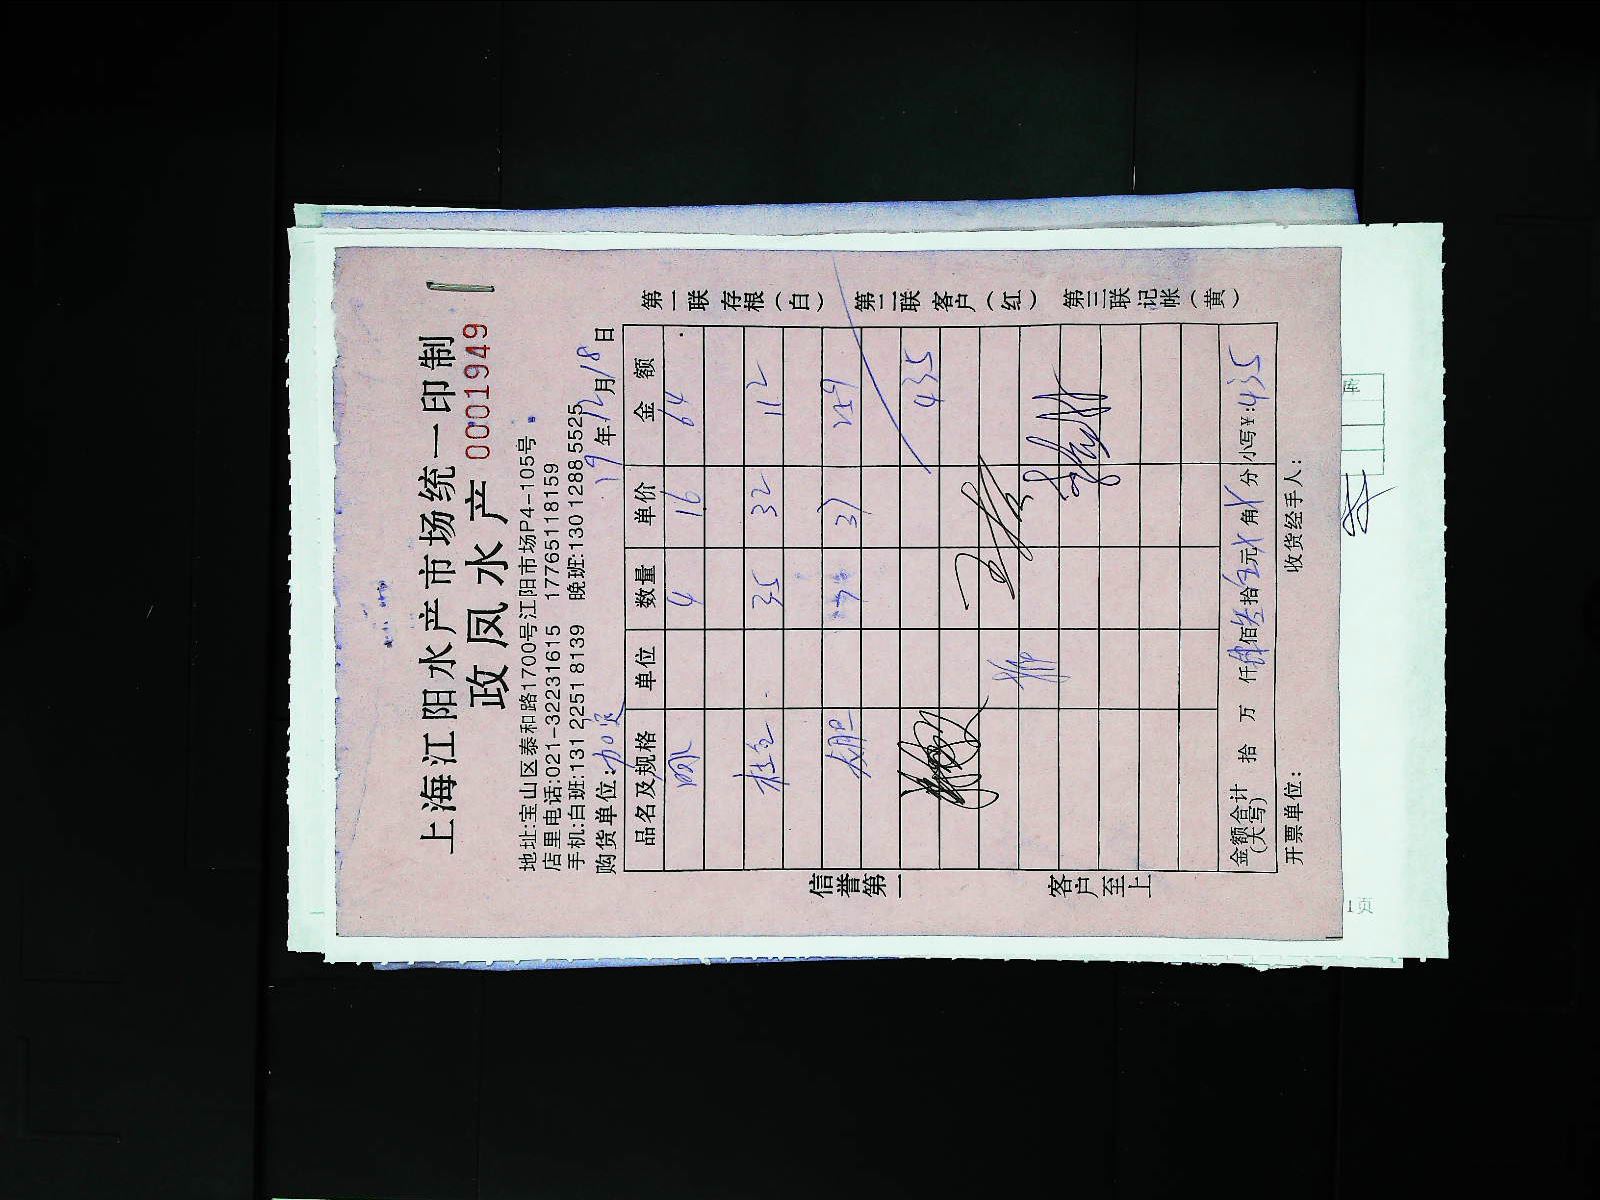 上海江阳水产市场统一印制
政凤水产 0001949
地址:宝山区泰和路1700号江阳市场P4-105号
店里电话:021-32231615 17765118159
手机:白班:131 2251 8139 晚班:130 1288 5525
购货单位: 19年12月18日
品名及规格 单位 数量 单价 金额
4 16 64
3.5 32 112
37 259
435
金额合计(大写) 拾 万 仟 肆佰叁拾伍元 角 分 小写¥:435
开票单位: 收货经手人:
信誉第一 客户至上
第一联 存根(白) 第二联 客户(红) 第三联 记帐(黄)
1页